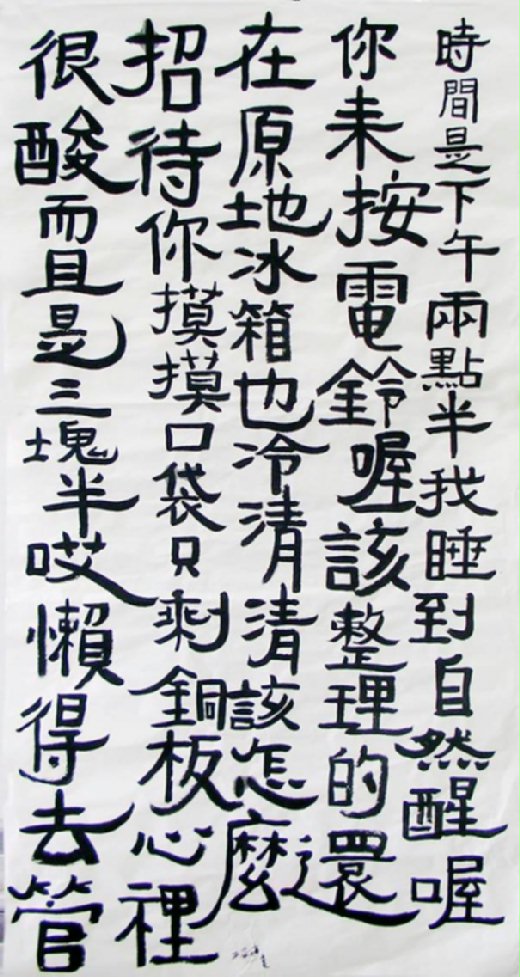 時間是下午兩點半我睡到自然醒喔
你未按電鈴喔該整理的還
在原地冰箱也冷清清該怎麼
招待你摸摸口袋只剩銅板心裡
很酸而且是三塊半哎懶得去管